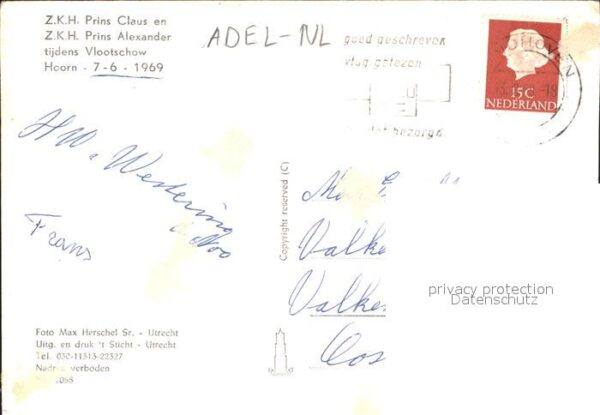 Z.K.H. Prins Claus en
Z.K.H. Prins Alexander
tijdens Vlootschow
Hoorn - 7-6-1969
ADEL-NL
goed geschreven
vlug gelezen
bezorgd
15 C
NEDERLAND
Frans
Copyright reserved (C)
Valke
Valke
Oos
privacy protection
Datenschutz
Foto Max Herschel Sr. - Utrecht
Uitg. en druk 't Sticht - Utrecht
Tel. 030-11313-22327
verboden